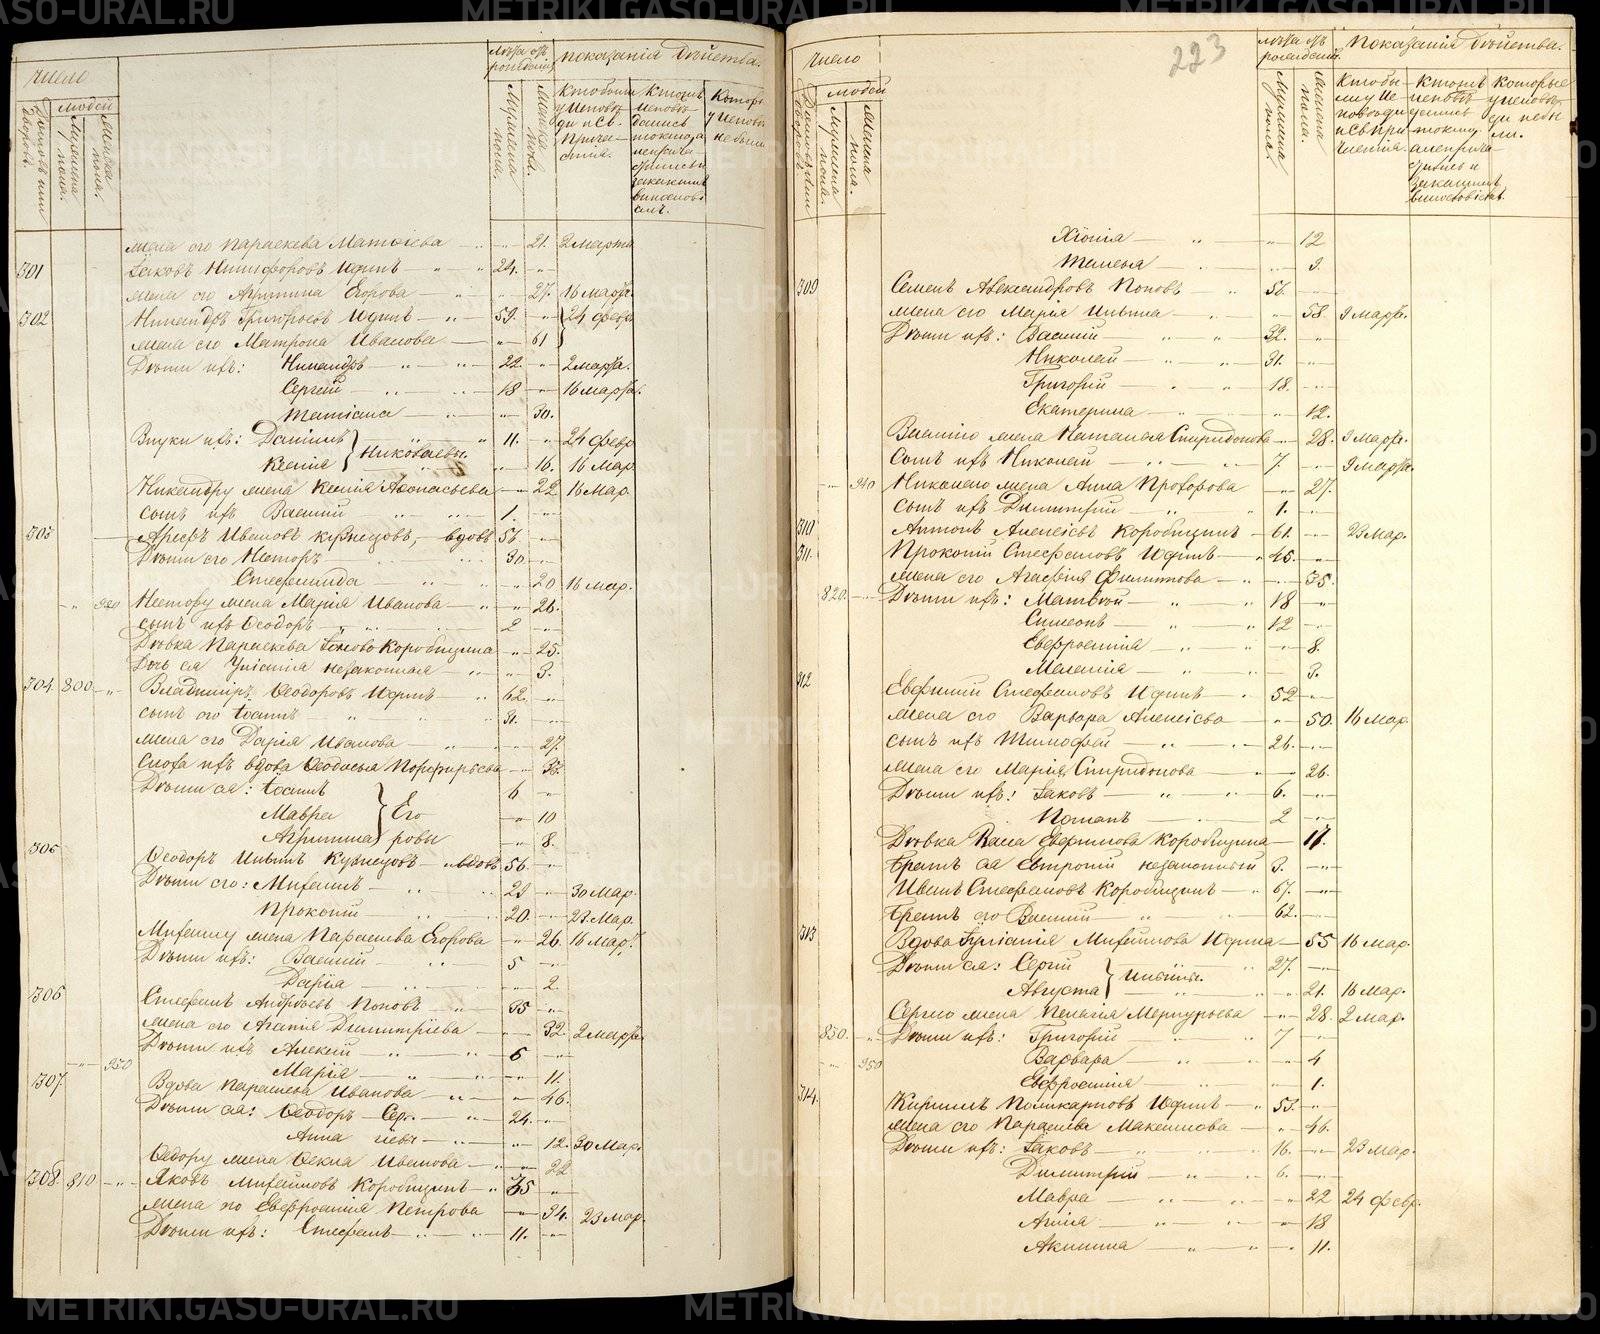 число
людей
Домовъ или дворовъ.
Мужеска пола.
Женска пола.
лѣта отъ рожденія
Мужеска пола.
Женска пола.
показанія дѣйства.
Кто были у исповѣди и Св. Причастія.
Которы у исповѣди не были
жена его Параскева Матѳіева — 21. 2 марта
301 Іаковъ Никифоровъ Юдинъ — 24.
жена его Агрипина Егорова — 27. 16 марта.
302 Никандръ Григорьевъ Юдинъ — 59. 24 февр
жена его Матрона Иванова — 61
Дѣти ихъ: Никандръ — 22. 2 марта.
Сергей — 18 16 марта.
Татіана — 30.
Внуки ихъ: Даніилъ 11. 24 февр
Ксенія } Николаевы. 16. 16 Мар.
Никандру жена Ксенія Аѳонасьева — 22 16 Мар.
сынъ ихъ Василій — 1.
303 Арефъ Ивановъ Кузнецовъ, — вдовъ 56.
Дѣти его Несторъ 30.
Стефанида — 20 16 мар.
Нестору жена Марія Иванова — 26.
сынъ ихъ Ѳеодоръ — 2
Дѣвка Параскева Іоково Коробицына — 25.
Дочь ея Улианія незаконная — 3.
304 800 Владиміръ Ѳеодоровъ Юдинъ — 62.
сынъ его Іоаннъ — 31.
жена его Дарія Иванова — 27.
Сноха ихъ вдова Ѳеодосья Порфирьева — 33.
Дѣти ея: Іоаннъ 6
Мавра } Его 10
Агрипина ровы 8.
305 Ѳеодоръ Ильинъ Кузнецовъ — вдовъ 56.
Дѣти его: Михаилъ — 29 30 Мар.
Прокопій — 20. 23 Мар.
Михаилу жена Параскева Егорова — 26. 16 Мар.
Дѣти ихъ: Василій — 5
Дарія — 2.
306 Стефанъ Андреевъ Поповъ 35
жена его Агапія Димитріева — 32. 2 Марта.
Дѣти ихъ Алексій — 6
950 Марія — 11.
307 Вдова Параскева Иванова — 46.
Дѣти ея: Ѳеодоръ — Сер. — 24.
Анна гіевы — 12. 30 Мар.
Ѳедору жена Ѳекла Иванова — 22
308 810 Яковъ Михайловъ Коробицынъ — 35
жена его Евфросинія Петрова — 34. 23 Мар.
Дѣти ихъ: Стефанъ — 11.
223
число
людей
Домовъ или дворовъ.
Мужеска пола.
Женска пола.
лѣта отъ рожденія.
Мужеска пола.
Женска пола.
показанія дѣйства.
Кто были у исповѣди и Св. Причастія.
Которые у исповѣди не были.
Хіонія — 12
Татьяна — 9.
309 Семенъ Александровъ Поповъ — 56.
жена его Марія Ильина — 58. 9 марта.
Дѣти ихъ: Василій — 32.
Николай — 31.
Григорій — 18.
Екатерина — 12.
Василію жена Наталия Спиридонова — 28. 9 марта.
Сынъ ихъ Николай — 7. 9 марта.
940 Николаю жена Анна Прохорова — 27.
Сынъ ихъ Димитрій — 1.
310 Антонъ Алексіевъ Коробицынъ — 61. 23 мар.
311 Прокопій Стефановъ Юдинъ — 45.
жена его Агафия Филиппова — 35.
820. Дѣти ихъ: Матѳей — 18
Симеонъ — 12
Евфросинія — 8.
Меланія — 3.
312 Евфимій Стефановъ Юдинъ — 52
жена его Варвара Алексіева — 50. 16 мар.
сынъ ихъ Тимофей — 26.
жена его Марія Спиридонова — 26.
Дѣти ихъ: Іаковъ — 6.
Романъ — 2
Дѣвка Раиса Евфимова Коробицына — 17.
Братъ ея Евтропій незаконный 3.
Иванъ Стефановъ Коробицынъ — 67.
Братъ его Василій — 62.
313 Вдова Іулианія Михайлова Юдина — 55 16 мар.
Дѣти ея: Сергій 27.
Августа } Ильины. 21. 16 Мар.
Сергію жена Пелагія Меркурьева — 28. 2 мар.
850. Дѣти ихъ: Григорій — 7
950 Варвара — 4
Евфросинія 1.
314. Кириллъ Поликарповъ Юдинъ — 53.
жена его Параскева Максимова — 46.
Дѣти ихъ: Іаковъ — 16. 23 мар.
Димитрій — 6.
Мавра — 22 24 февр.
Анна — 18
Акилина — 11.